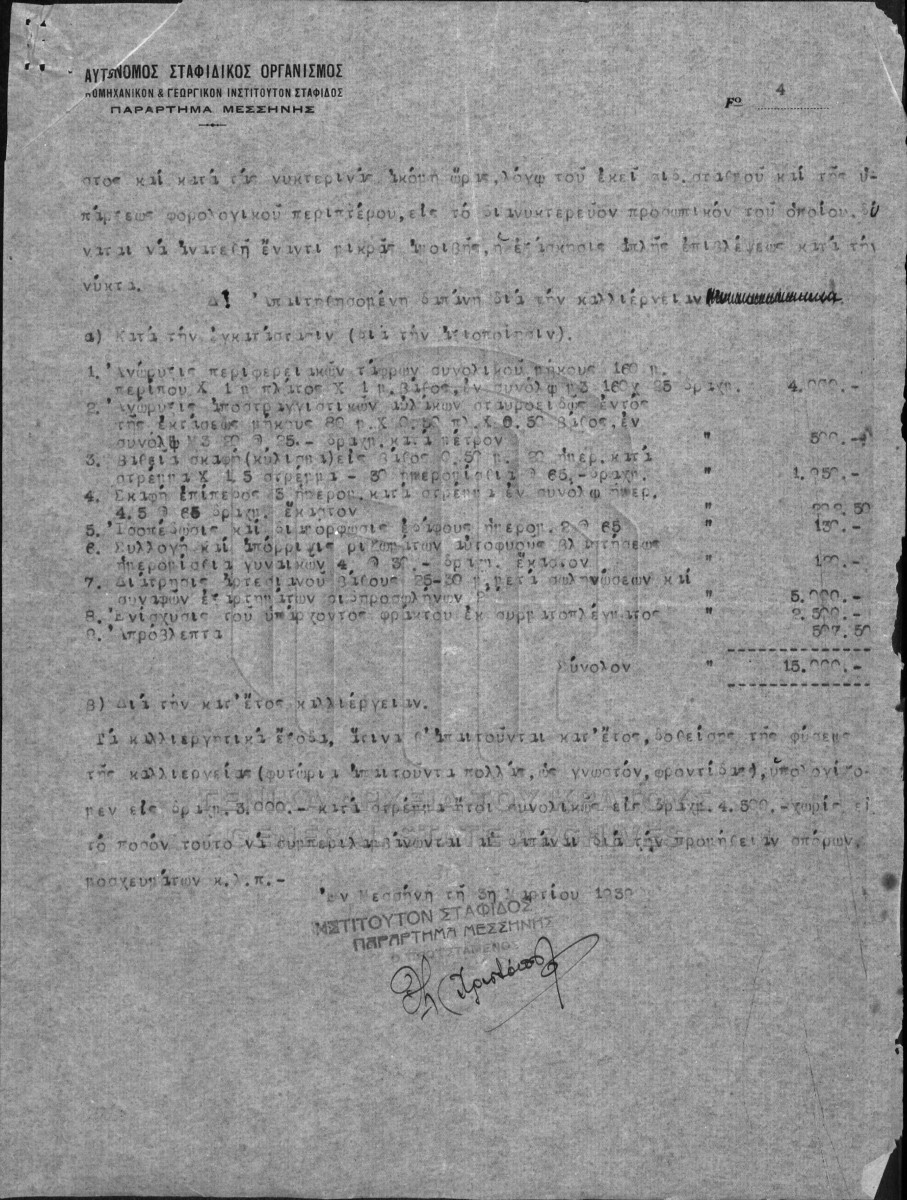 ΑΥΤΟΝΟΜΟΣ ΣΤΑΦΙΔΙΚΟΣ ΟΡΓΑΝΙΣΜΟΣ
ΟΜΗΧΑΝΙΚΟΝ & ΓΕΩΡΓΙΚΟΝ ΙΝΣΤΙΤΟΥΤΟΝ ΣΤΑΦΙΔΟΣ
ΠΑΡΑΡΤΗΜΑ ΜΕΣΣΗΝΗΣ
Fο 4
στος καί κατά τάς νυκτερινάς ἀκόμη ὥρας, λόγῳ τοῦ ἐκεῖ σιδ. σταθμοῦ καί τῆς ὑ-
πάρξεως φορολογικοῦ περιπτέρου, εἰς τό διανυκτερεῦον προσωπικόν τοῦ ὁποίου, δύ
ναται νά ἀνατεθῇ ἔναντι μικρᾶς ἀμοιβῆς, ἡ ἐξάσκησις ἁπλῆς ἐπιβλέψεως κατά τήν
νύκτα.
Δ! Ἀπαιτηθησομένη δαπάνη διά τήν καλλιέργειαν
α) Κατά τήν ἐγκατάστασιν (διά τήν ἀξιοποίησιν).
1. Ἀνώρυξις περιφερειακῶν τάφρων συνολικοῦ μήκους 160 μ.
περίπου Χ 1 μ πλάτος Χ 1 μ. βάθος, ἐν συνόλῳ μ3 160 Χ 25 δραχμ. 4.000.-
2. Ἀνώρυξις ἀποστραγγιστικῶν αὐλάκων σταυροειδῶς ἐντός
τῆς ἐκτάσεως μήκους 80 μ. Χ 0.50 πλ. Χ 0.50 βάθος, ἐν
συνόλῳ μ3 20 @ 25.- δραχμ. κατά μέτρον " 500.-
3. Βαθεῖα σκαφή (κύλισμα) εἰς βάθος 0.50 μ. 20 ἡμερ. κατά
στρέμμα Χ 1,5 στρέμμα - 30 ἡμερομίσθια @ 65.- δραχμ. " 1.950.-
4. Σκαφή ἐπίπεδος 3 ἡμερομ. κατά στρέμμα ἐν συνόλῳ ἡμερ.
4.5 @ 65 δραχμ. ἕκαστον " 292.50
5. Ἰσοπέδωσις καί διαμόρφωσις ἐδάφους ἡμερομ. 2 @ 65 " 130.-
6. Συλλογή καί ἀπόρριψις ριζωμάτων αὐτοφυοῦς βλαστήσεως
ἡμερομίσθια γυναικῶν 4 @ 30.- δραχμ. ἕκαστον " 120.-
7. Διάτρησις ἀρτεσιανοῦ βάθους 25-30 μ. μετά σωληνώσεων καί
συναφῶν ἐξαρτημάτων σιδηροσωλήνων 2" " 5.000.-
8. Ἐνίσχυσις τοῦ ὑπάρχοντος φράκτου ἐκ συρματοπλέγματος " 2.500.-
9. Ἀπρόβλεπτα 507.50
Σύνολον " 15.000.-
β) Διά τήν κατ' ἔτος καλλιέργειαν.
Τά καλλιεργητικά ἔξοδα, ἅτινα θ' ἀπαιτοῦνται κατ' ἔτος, δοθείσης τῆς φύσεως
τῆς καλλιεργείας (φυτώρια ἀπαιτοῦντα πολλάς, ὡς γνωστόν, φροντίδας), ὑπολογίζο-
μεν εἰς δραχμ. 3.000.- κατά στρέμμα ἤτοι συνολικῶς εἰς δραχμ. 4.500.- χωρίς εἰ
τό ποσόν τοῦτο νά συμπεριλαμβάνωνται αἱ δαπάναι διά τήν προμήθειαν σπόρων,
μοσχευμάτων κ.λ.π.-
Ἐν Μεσσήνῃ τῇ 3ῃ Μαρτίου 1939
ΙΝΣΤΙΤΟΥΤΟΝ ΣΤΑΦΙΔΟΣ
ΠΑΡΑΡΤΗΜΑ ΜΕΣΣΗΝΗΣ
Ο ΠΡΟΪΣΤΑΜΕΝΟΣ